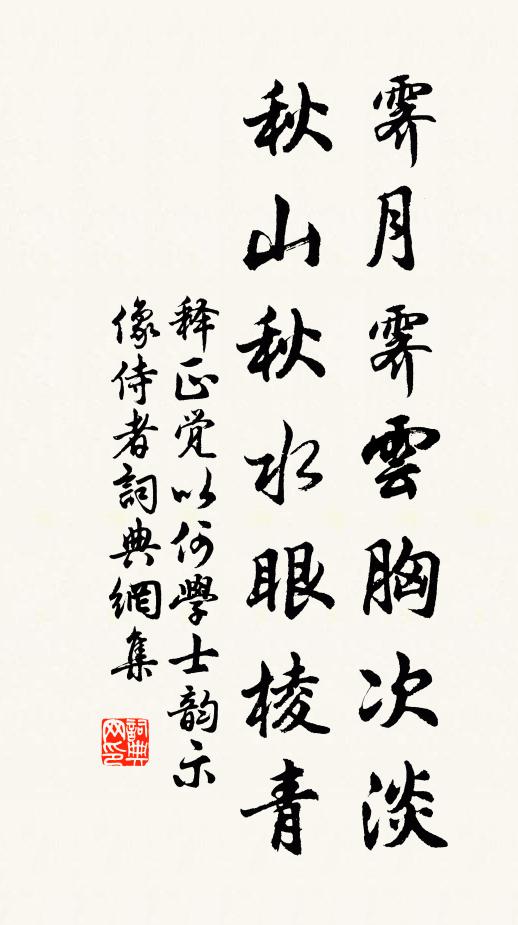 霁月霁雲胸次淡
秋山秋水眼棱青
释正觉以何學士韵示
像侍者詞典網集
詞典网印